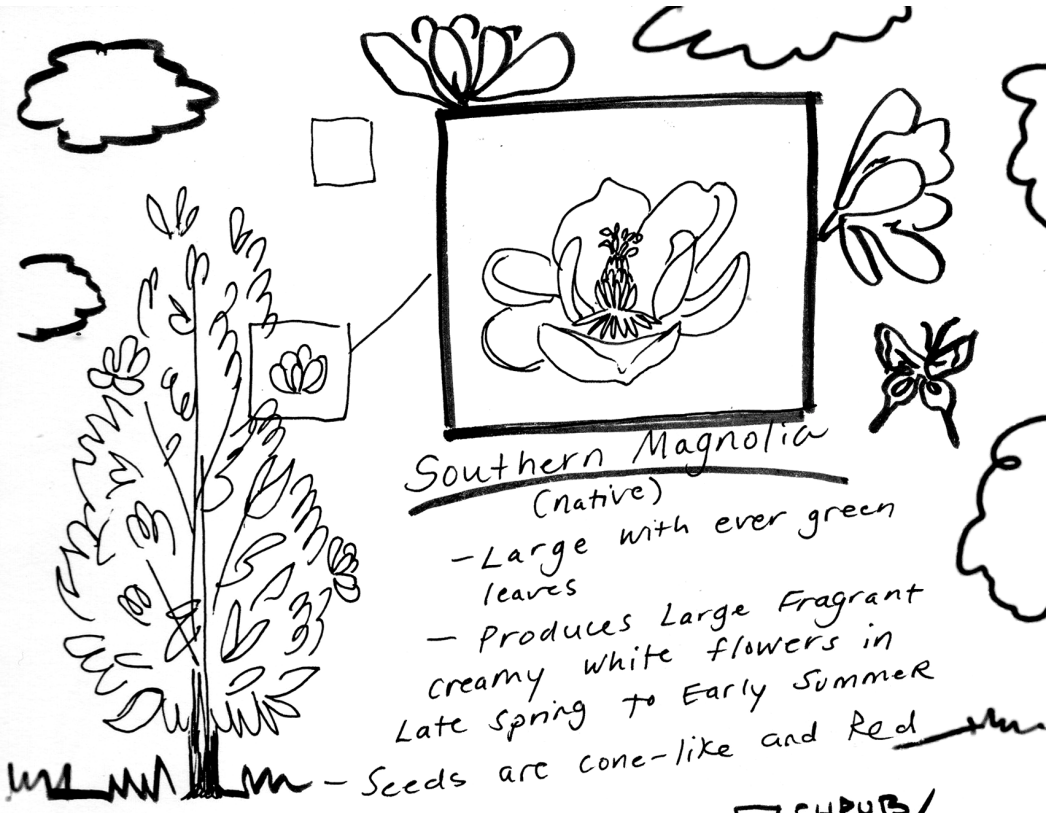 Southern Magnolia
(native)
- Large with ever green
leaves
- Produces Large Fragrant
creamy white flowers in
Late Spring to Early Summer
- Seeds are cone-like and Red
SHRUB/